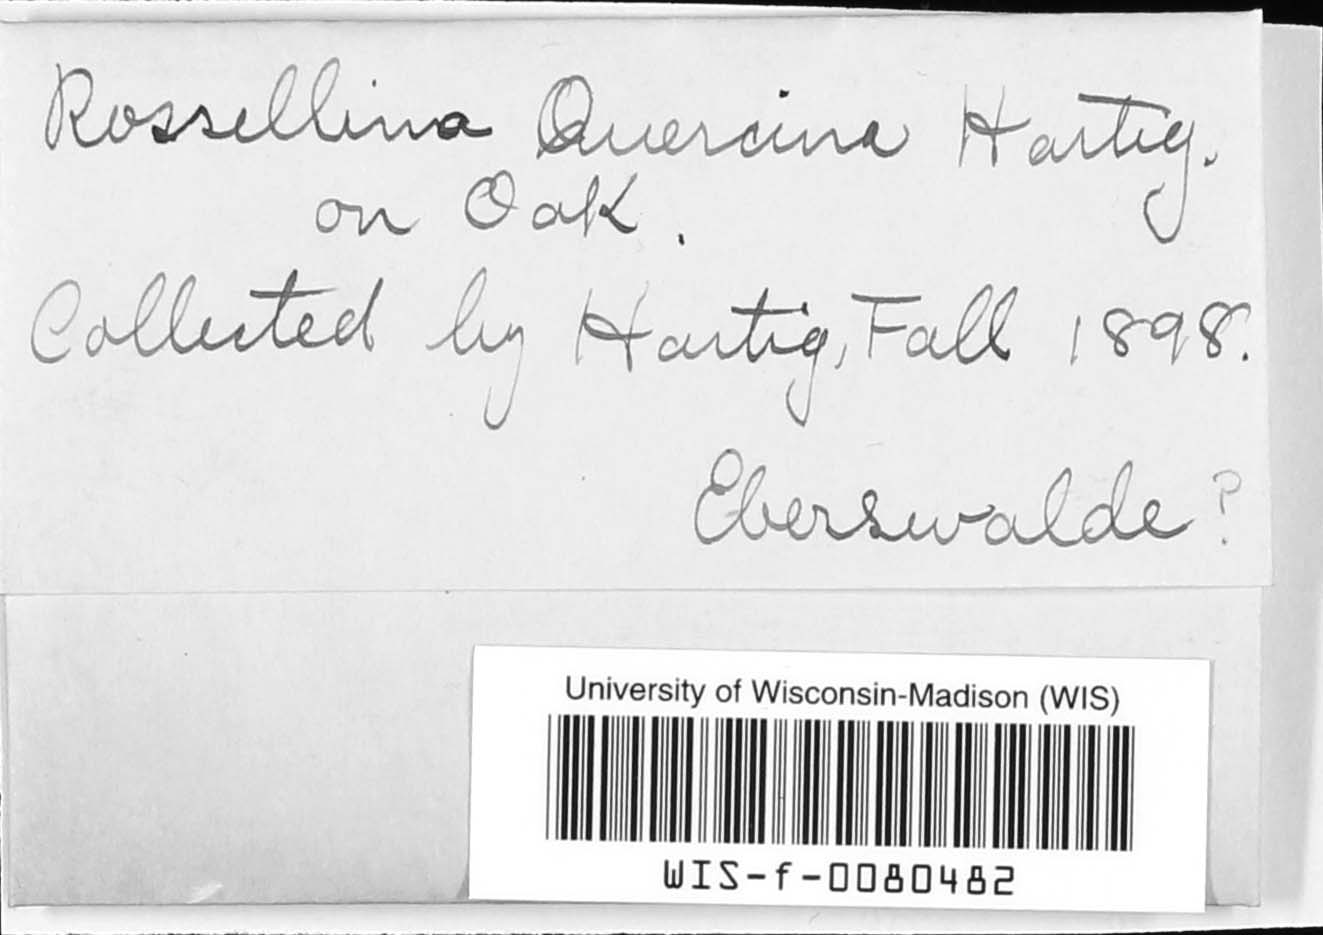 Rossellina Quercina Hartig.
on Oak.
Collected by Hartig, Fall 1898.
Eberswalde?
University of Wisconsin-Madison (WIS)
WIS-f-0080482